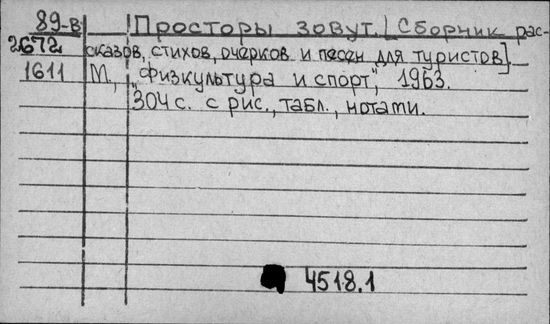 89-в Просторы зовут. [Сборник рас-
2672 сказов, стихов, очерков и песен для туристов].
1611 М., "Физкультура и спорт", 1963.
304 с. с рис., табл., нотами.
4518.1